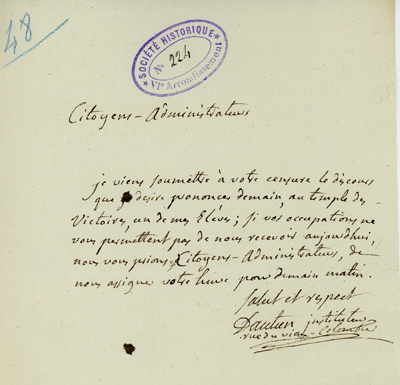 48
SOCIÉTÉ HISTORIQUE
No 224
VIe Arrondissement
Citoyens-Administrateurs
je viens soumettre à votre censure le discours
que desire prononcer demain, au temple des-
Victoires, un de mes Eleves; si vos occupations ne
vous permettent pas de nous recevoir aujourd'hui,
nous vous prions, Citoyens-Administrateurs, de
nous assigner votre heure pour demain matin.
Salut et respect
Dautun instituteur
rue du vieux-Colombier